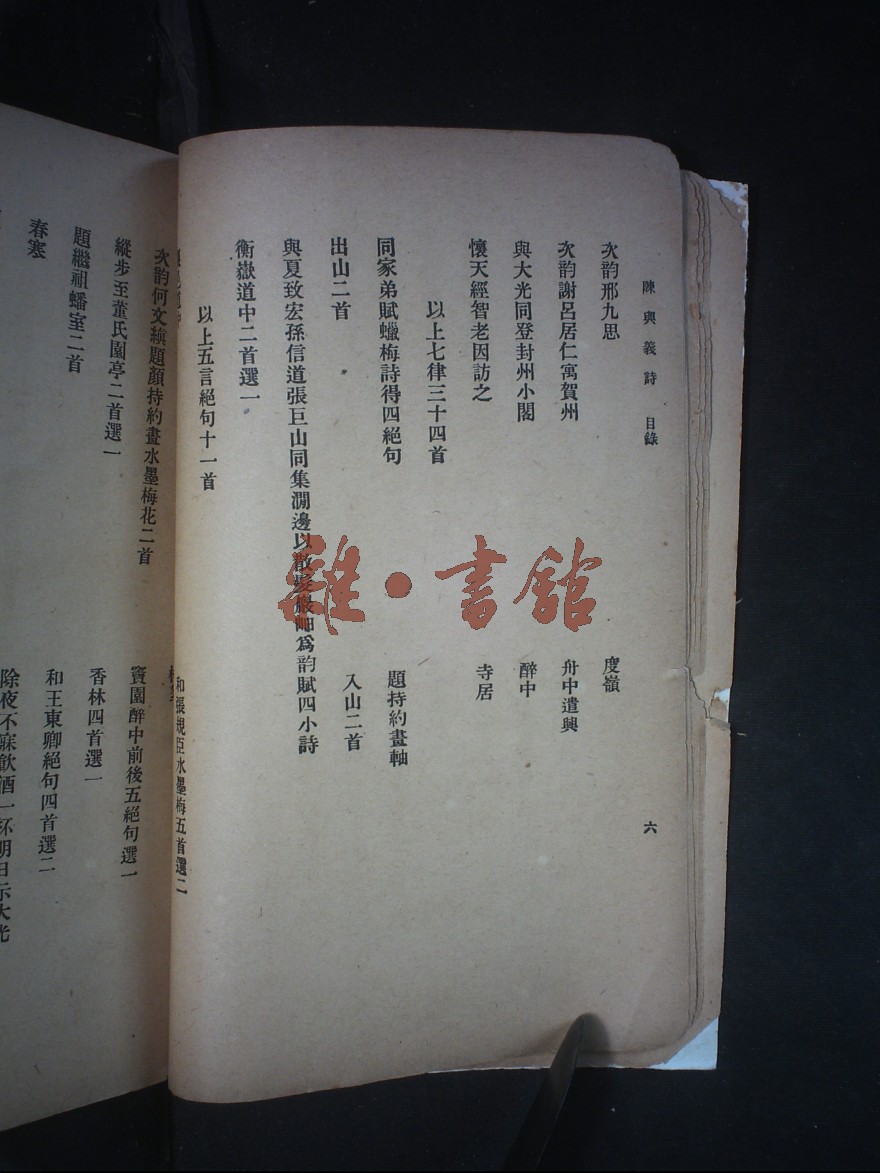 陳與義詩 目錄 六
次韵邢九思 度嶺
次韵謝呂居仁寓賀州 舟中遣興
與大光同登封州小閣 醉中
懷天經智老因訪之 寺居
以上七律三十四首
同家弟賦蠟梅詩得四絕句 題持約畫軸
出山二首 入山二首
與夏致宏孫信道張巨山同集澗邊以散髮巖岫爲韵賦四小詩
衡嶽道中二首選一
以上五言絕句十一首
和張規臣水墨梅五首選二
次韵何文縝題顏持約畫水墨梅花二首 竇園醉中前後五絕句選一
縱步至董氏園亭二首選一 香林四首選一
題繼祖蟠室二首 和王東卿絕句四首選二
春寒 除夜不寐飲酒一杯明日示大光
雒·書館